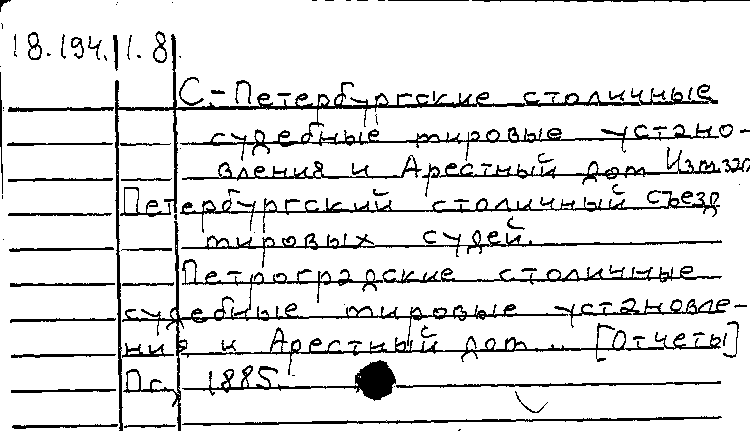 18.194.1.8
С.-Петербургские столичные
судебные мировые устано-
вления и Арестный дом
Петербургский столичный съезд
мировых судей.
Петроградские столичные
судебные мировые установле-
ния и Арестный дом .. [Отчеты]
Пг., 1885.